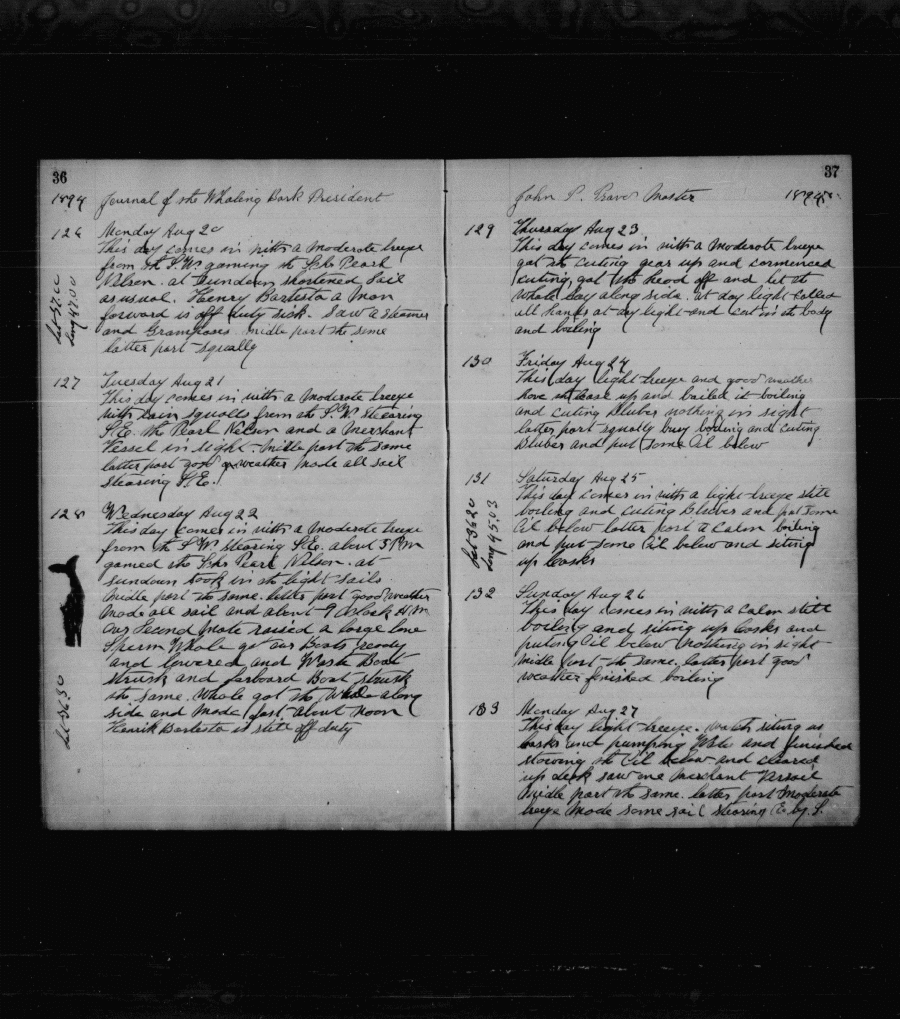 36
1894 Journal of the Whaling Bark President
126 Monday Aug 20
This day comes in with a moderate breeze
from the S.W. gaming the Schr Pearl
Nelson. at Sundown shortened Sail
as usual. Henry Bartesta a man
forward is off duty sick. Saw a steamer
and Grampuses. midle part the same
latter part squally
Lat 37.00
Long 47.00
127 Tuesday Aug 21
This day comes in with a moderate breeze
with rain squalls from the S.W. Stearing
S.E. the Pearl Nelson and a merchant
Vessel in sight. Midle part the same
latter part good weather made all sail
stearing S.E.
128 Wednesday Aug 22
This day comes in with a moderate breeze
from the S.W. Stearing S.E. about 5 P.M
gamed the Schr Pearl Nelson. at
sundown took in the light sails.
midle part the same. latter part good weather
made all sail and about 9 Oclock A.M
our Second Mate raised a large lone
Sperm Whale got our Boats ready
and lowered and Waist Boat
struck and larboard Boat struck
the same. Whale got the Whale along
side and made fast about noon
Henrik Bartesta is still off duty
Lat 36.30
37
John P. Praro Master 1894
129 Thursday Aug 23
This day comes in with a moderate breeze
got the cuting gear up and commenced
cuting, got the head off and let the
whale lay along side. at day light called
all hands at day light and cut in the body
and boiling
130 Friday Aug 24
This day light breeze and good weather
hove the case up and bailed it boiling
and cuting Bluber nothing in sight
latter part squally busy boiling and cuting
Bluber and put some Oil below
131 Saturday Aug 25
This day comes in with a light breeze still
boiling and cuting Bluber and put some
Oil below latter part a calm boiling
and put some Oil below and siting
up casks
Lat 36.20
Long 45.03
132 Sunday Aug 26
This day comes in with a calm still
boiling and siting up casks and
puting Oil below nothing in sight
midle part the same. latter part good
weather finished boiling
133 Monday Aug 27
This day light breeze. watch siting up
casks and pumping Water and finished
stowing the Oil below and cleared
up deck saw one merchant Vessail
midle part the same. latter part moderate
breeze made some sail stearing E. by S.